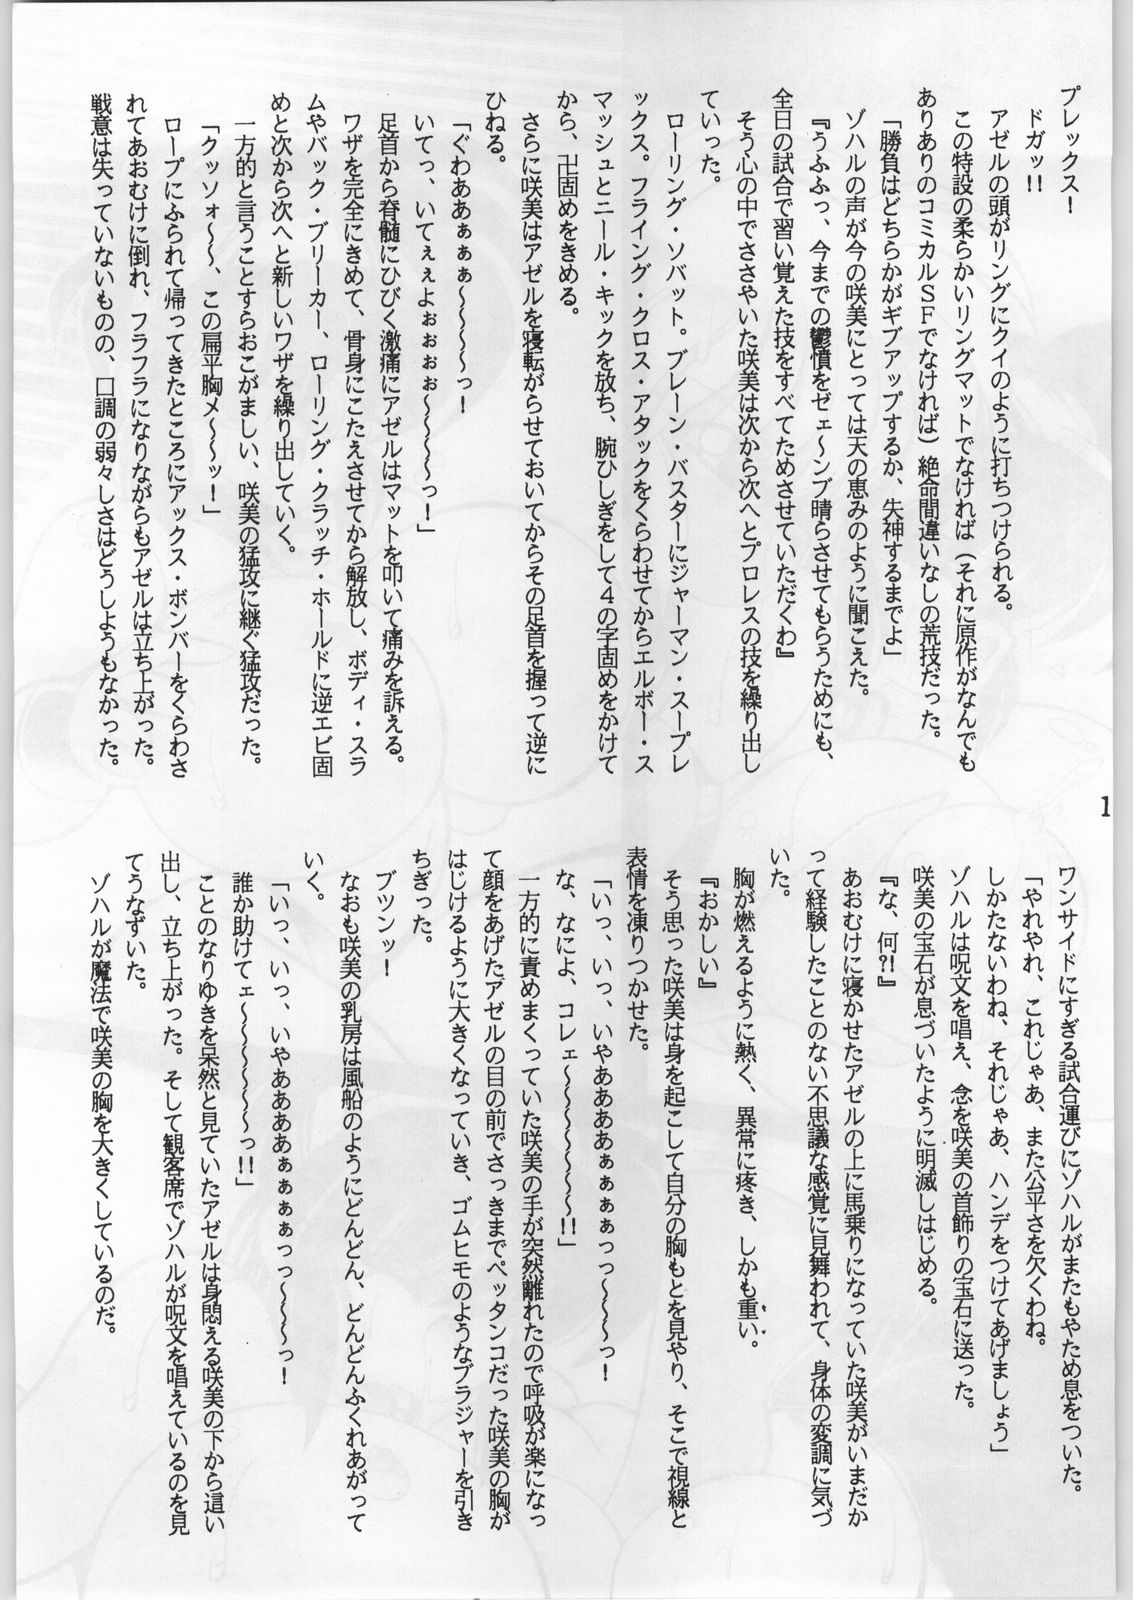 プレックス！
ドガッ!!
アゼルの頭がリングにクイのように打ちつけられる。
この特設の柔らかいリングマットでなければ（それに原作がなんでも
ありありのコミカルＳＦでなければ）絶命間違いなしの荒技だった。
「勝負はどちらかがギブアップするか、失神するまでよ」
ゾハルの声が今の咲美にとっては天の恵みのように聞こえた。
『うふふっ、今までの鬱憤をゼェ〜ンブ晴らさせてもらうためにも、
全日の試合で習い覚えた技をすべてためさせていただくわ』
そう心の中でささやいた咲美は次から次へとプロレスの技を繰り出し
ていった。
ローリング・ソバット。ブレーン・バスターにジャーマン・スープレ
ックス。フライング・クロス・アタックをくらわせてからエルボー・ス
マッシュとニール・キックを放ち、腕ひしぎをして４の字固めをかけて
から、卍固めをきめる。
さらに咲美はアゼルを寝転がらせておいてからその足首を握って逆に
ひねる。
「ぐわああぁぁぁ〜〜〜〜っ！
いてっ、いてぇぇよぉぉぉぉ〜〜〜〜っ！」
足首から脊髄にひびく激痛にアゼルはマットを叩いて痛みを訴える。
ワザを完全にきめて、骨身にこたえさせてから解放し、ボディ・スラ
ムやバック・ブリーカー、ローリング・クラッチ・ホールドに逆エビ固
めと次から次へと新しいワザを繰り出していく。
一方的と言うことすらおこがましい、咲美の猛攻に継ぐ猛攻だった。
「クッソォ〜〜、この扁平胸メ〜〜ッ！」
ロープにふられて帰ってきたところにアックス・ボンバーをくらわさ
れてあおむけに倒れ、フラフラになりながらもアゼルは立ち上がった。
戦意は失っていないものの、口調の弱々しさはどうしようもなかった。
1
ワンサイドにすぎる試合運びにゾハルがまたもやため息をついた。
「やれやれ、これじゃあ、また公平さを欠くわね。
しかたないわね、それじゃあ、ハンデをつけてあげましょう」
ゾハルは呪文を唱え、念を咲美の首飾りの宝石に送った。
咲美の宝石が息づいたように明滅しはじめる。
『な、何?!』
あおむけに寝かせたアゼルの上に馬乗りになっていた咲美がいまだか
って経験したことのない不思議な感覚に見舞われて、身体の変調に気づ
いた。
胸が燃えるように熱く、異常に疼き、しかも重い。
『おかしい』
そう思った咲美は身を起こして自分の胸もとを見やり、そこで視線と
表情を凍りつかせた。
「いっ、いっ、いやああああぁぁぁぁっっ〜〜〜っ！
な、なによ、コレェ〜〜〜〜〜〜〜!!」
一方的に責めまくっていた咲美の手が突然離れたので呼吸が楽になっ
て顔をあげたアゼルの目の前でさっきまでペッタンコだった咲美の胸が
はじけるように大きくなっていき、ゴムヒモのようなブラジャーを引き
ちぎった。
ブツンッ！
なおも咲美の乳房は風船のようにどんどん、どんどんふくれあがって
いく。
「いっ、いっ、いやああああぁぁぁぁっっ〜〜〜〜っ！
誰か助けてェ〜〜〜〜〜〜〜っ!!」
ことのなりゆきを呆然と見ていたアゼルは身悶える咲美の下から這い
出し、立ち上がった。そして観客席でゾハルが呪文を唱えているのを見
てうなずいた。
ゾハルが魔法で咲美の胸を大きくしているのだ。